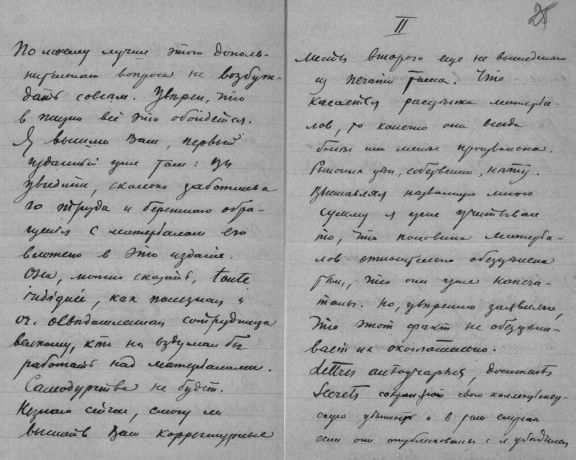 По моему лучше этого дополь-
нительного вопроса не возбуж-
дать совсем. Уверен, что
в пути всё это обойдется.
Я вышлю Вам, первый
изданный уже том: Вы
увидите, сколько заботлива-
го труда и бережного обра-
щения с материалом его
вложено в это издание.
Она, можно сказать, toute
indiquée, как полезная и
оч. осведомленная сотрудница
всякому, кто ни вздумал бы
работать над материалами.
Самодурства не будет.
Не знаю сейчас, смогу ли
выслать Вам корректурные
II
25
листы второго еще не вышедшаго
из печати тома. Что
касается расценки материа-
лов, то конечно она всегда
более или менее произвольна.
Рыночных цен, собственно, нету.
Выставляя названную мною
сумму я уже учитывал
то, что половина материа-
лов относительно обезценена
тем, что они уже напеча-
таны. Но, уверенно заявляю,
что этот факт не обезцени-
вает их окончательно.
Lettres autographes, documents
secrets сохраняют свою коллекционер-
скую ценность и в том случае
если они опубликованы с